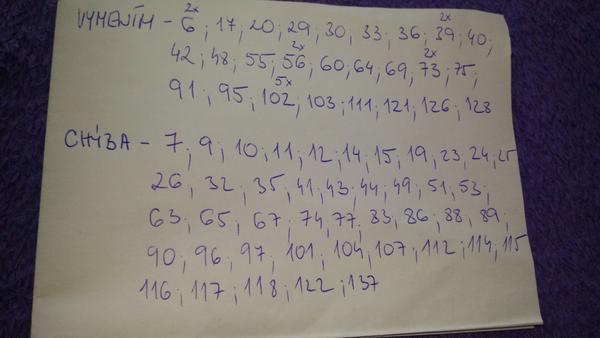 VYMENÍM - 6 2x; 17; 20; 29; 30; 33; 36; 39 2x; 40;
42; 48; 55; 56 2x; 60; 64; 69; 73 2x; 75;
91; 95; 102 5x; 103; 111; 121; 126; 128
CHÝBA - 7; 9; 10; 11; 12; 14; 15; 19; 23; 24; 25
26; 32; 35; 41; 43; 44; 49; 51; 53;
63; 65; 67; 74; 77; 83; 86; 88; 89;
90; 96; 97; 101; 104; 107; 112; 114; 115
116; 117; 118; 122; 137